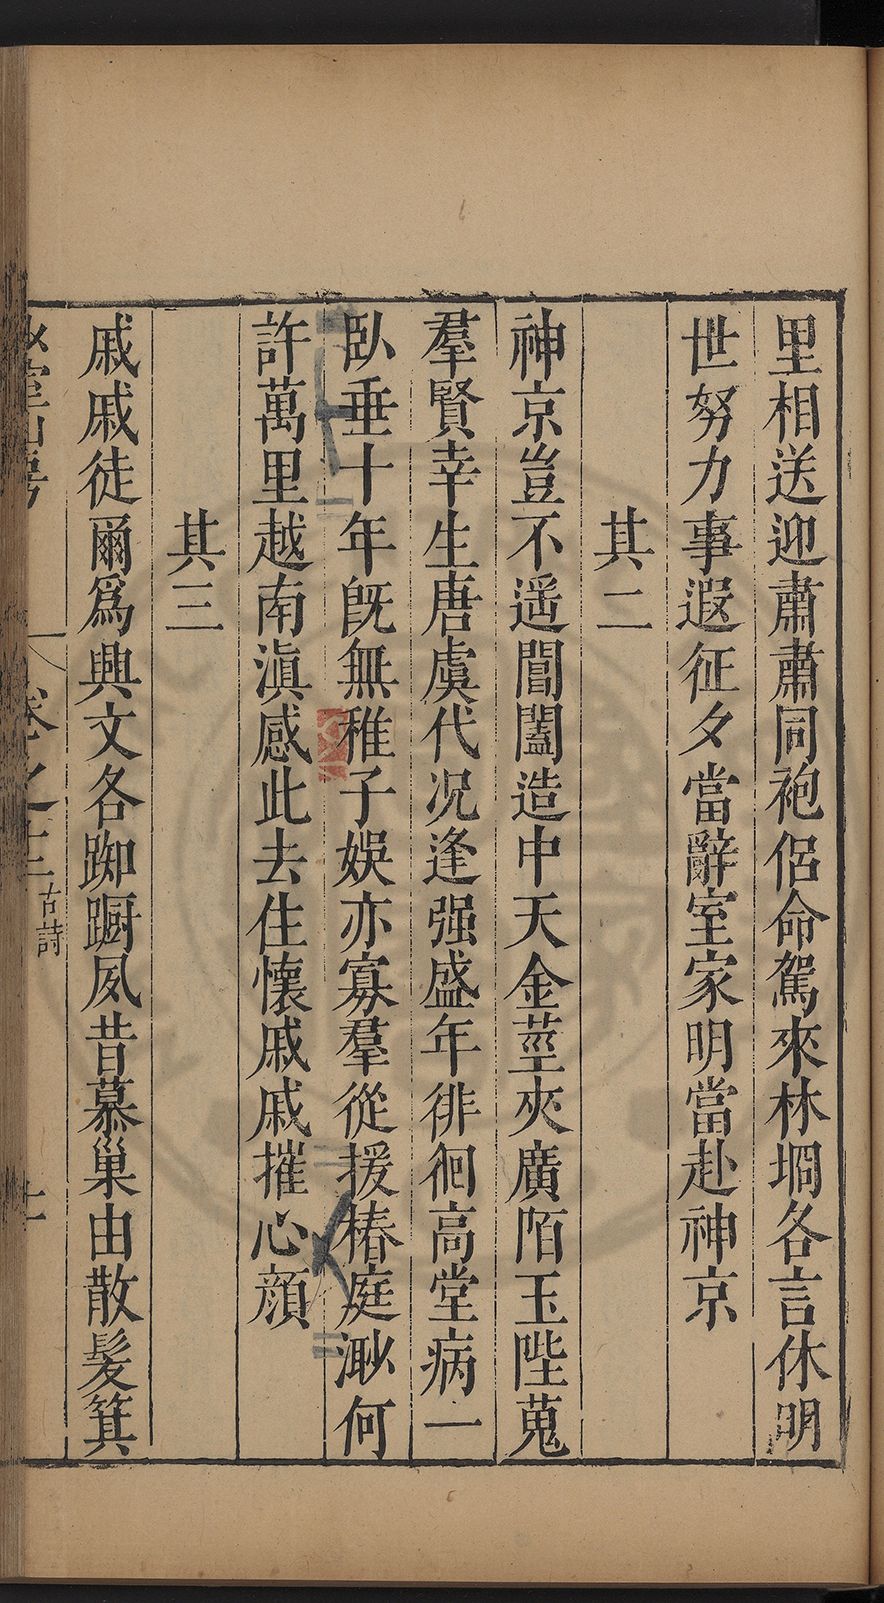 里相送迎肅肅同袍侶命駕來林坰各言休明
世努力事遐征夕當辭室家明當赴神京
其二
神京豈不遥閶闔造中天金莖夾廣陌玉陛蒐
羣賢幸生唐虞代况逢强盛年徘徊高堂病一
臥垂十年旣無稚子娛亦寡羣從援椿庭渺何
許萬里越南滇感此去住懷戚戚摧心顏
其三
戚戚徒爾爲興文各踟蹰夙昔慕巢由散髮箕
卷之十三 古詩